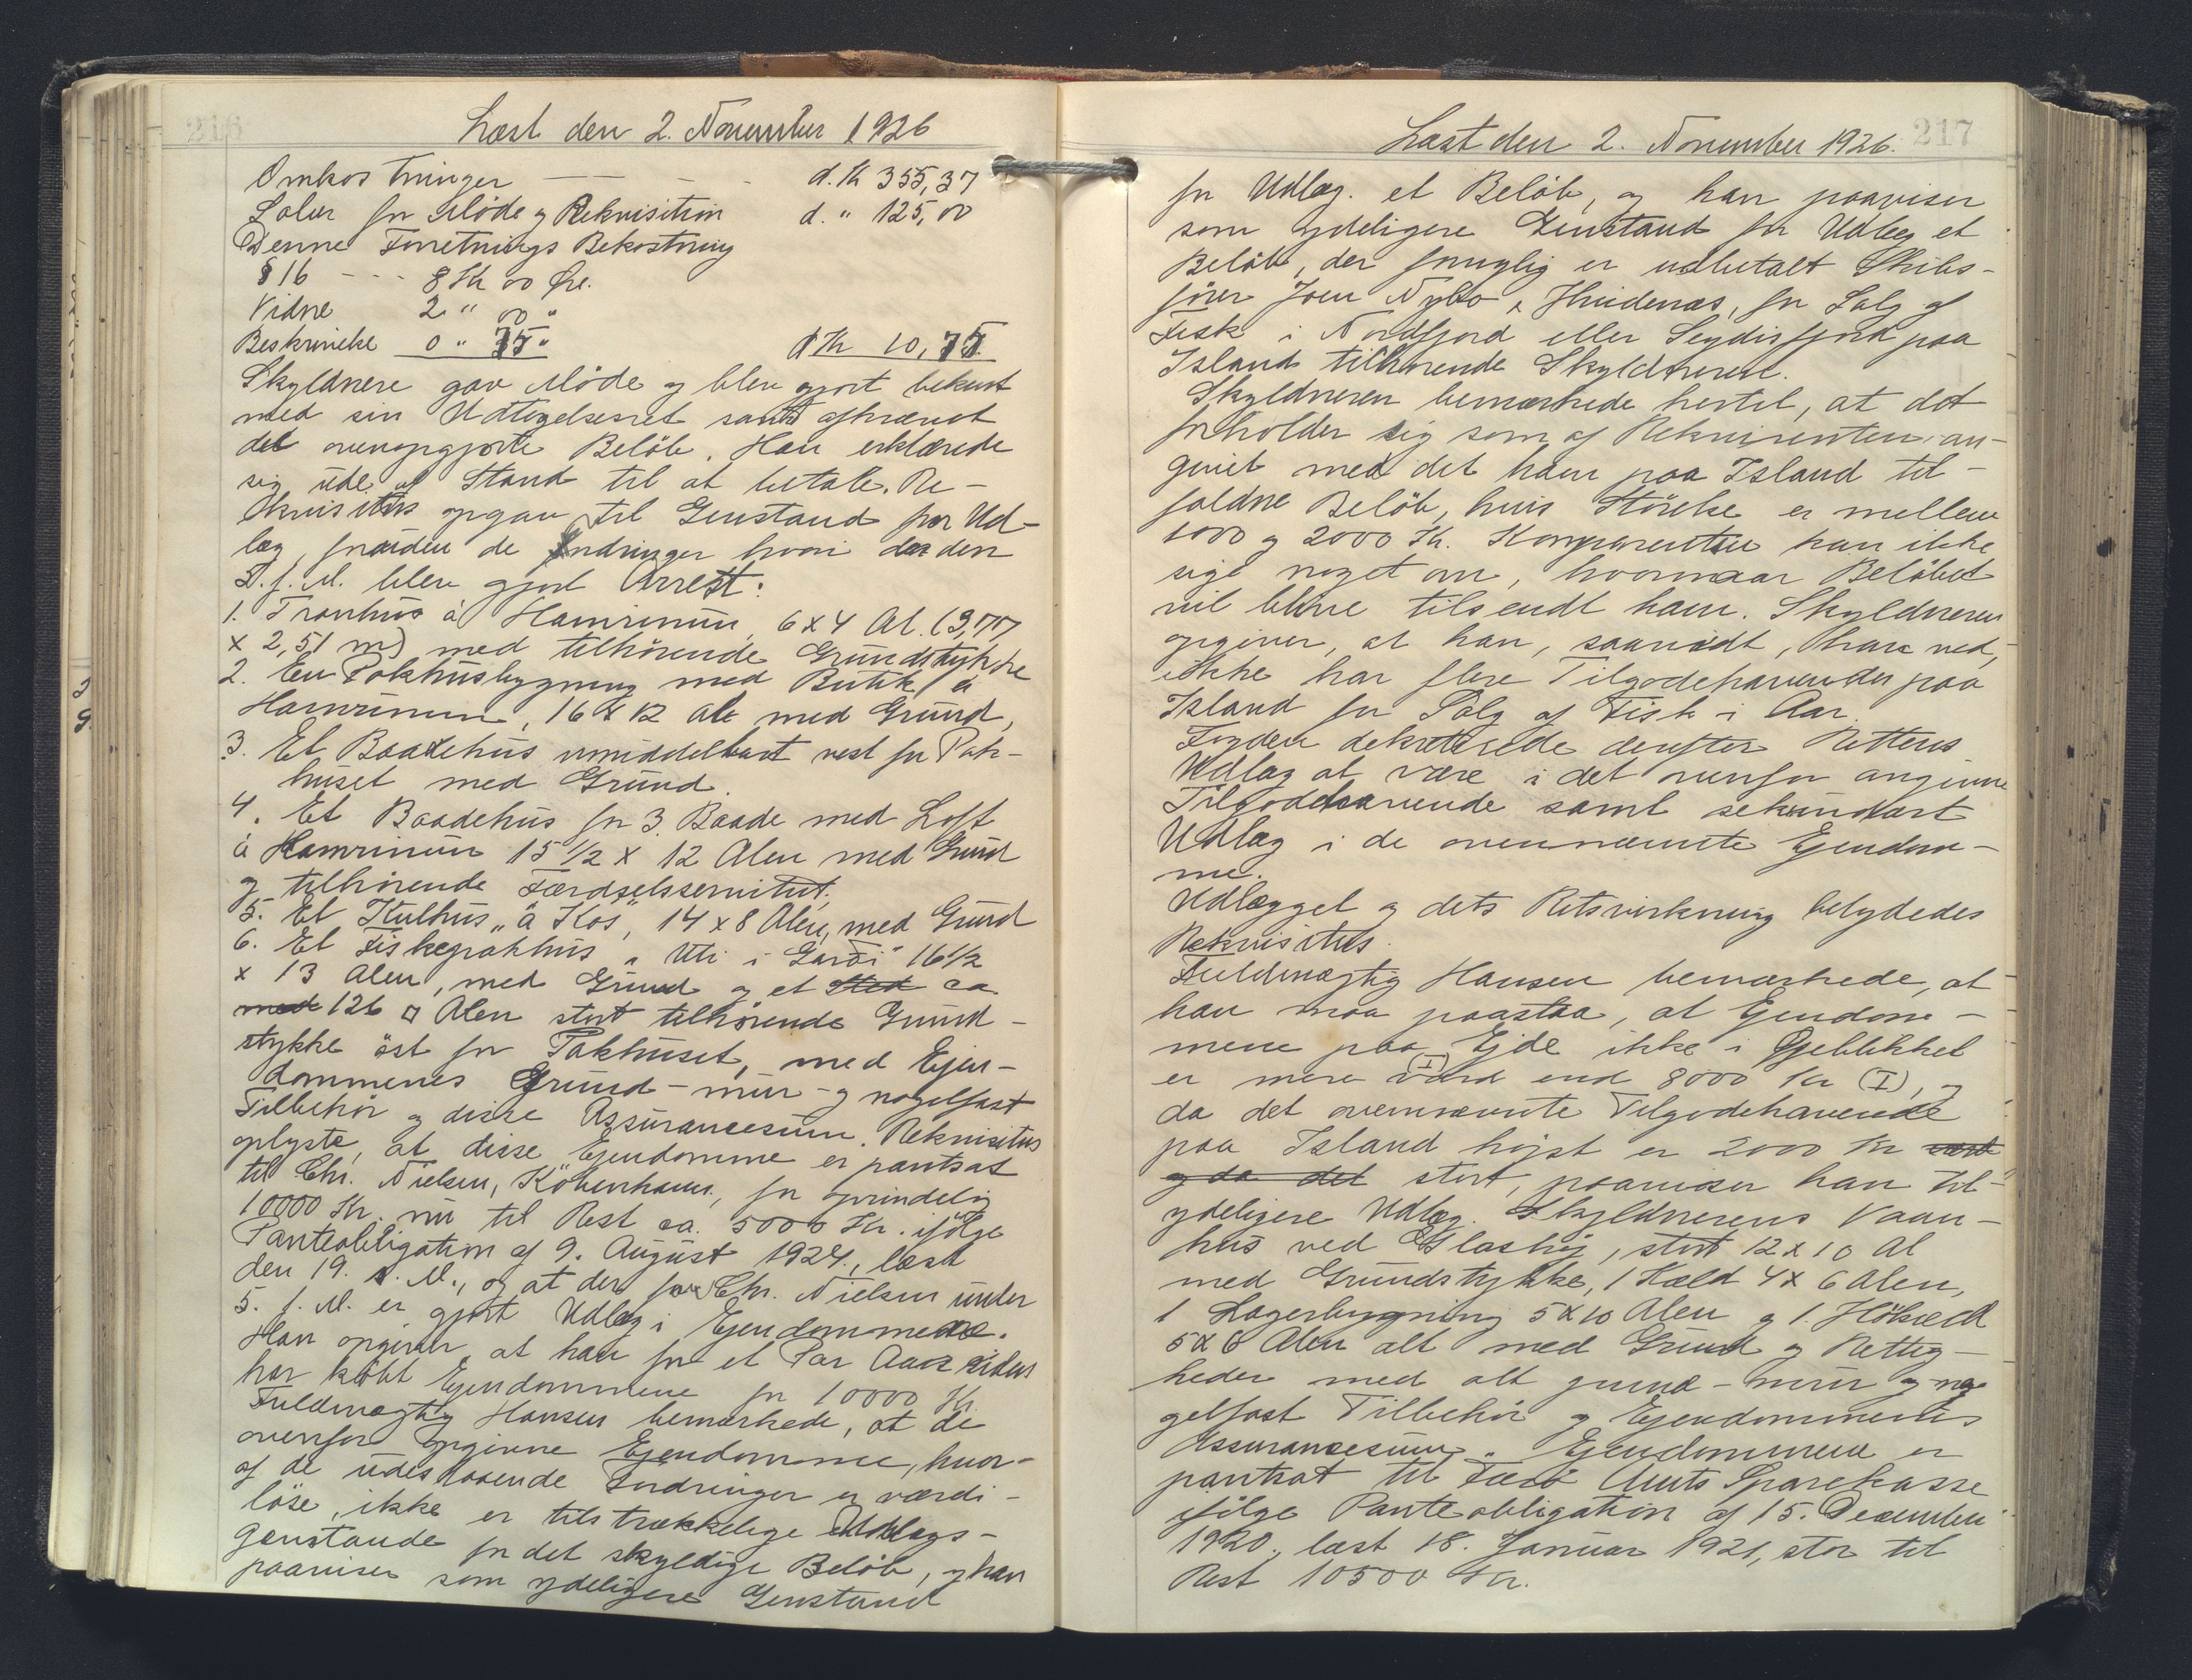 216
Læst den 2. November 1926
Omkostninger — — - d. Kr 355,37
Salær for Møde og Rekvisition d. " 125,00
Denne Forretnings Bekostning
§ 16 - - - 8 Kr 00 Øre.
Vidne 2 " 00 "
Beskrivelse 0 " 75 " d Kr 10,75
Skyldnere gav Møde og blev gjort bekent
med sin Udtagelsesret samt afkrævet
det ovenopgjorte Beløb. Han erklærede
sig ude af Stand til at betale. Re-
kvisitus opgav til Genstand for Ud-
læg, foruden de Fordringer hvori der den
5. f. M. blev gjort Arrest:
1. Tranhus á Hamrinum 6 x 4 Al. (3,77
x 2,51 m) med tilhørende Grundstykke
2. En Pakhusbygning med Butik á
Hamrinum, 16 x 12 Al. med Grund,
3. Et Baadehus umiddelbart vest for Pak-
huset med Grund.
4. Et Baadehus for 3 Baade med Loft
á Hamrinum 15 1/2 x 12 Alen med Grund
og tilhørende Færdselsservitut.
5. Et Kulhus "á Kos", 14 x 8 Alen, med Grund
6. Et Fiskepakhus "Uti i Garði" 16 1/2
x 13 Alen, med Grund og et Sted ca
med 126 □ Alen stort tilhørende Grund-
stykke øst for Pakhuset, med Ejen-
dommenes Grund- mur- og nagelfast
Tilbehør og disse Assurancesum. Rekvisitus
oplyste, at disse Ejendomme er pantsat
til Chr. Nielsen, København, for oprindelig
10000 Kr. nu til Rest ca. 5000 Kr. ifølge
Panteobligation af 9. August 1924, læst
den 19. s. M., og at der for Chr. Nielsen under
5. f. M. er gjort Udlæg i Ejendommene.
Han opgiver at han for et Par Aar siden
har købt Ejendommene for 10000 Kr.
Fuldmægtig Hansen bemærkede, at de
ovenfor opgivne Ejendomme, hvor-
af de udestaaende Fordringer er værdi-
løse, ikke er tilstrækkelige Udlægs-
genstande for det skyldige Beløb, og han
paaviser som ydeligere Genstand
217
Læst den 2. November 1926.
for Udlæg. et Beløb, og han paaviser
som ydeligere Genstand for Udlæg et
Beløb, der formylig er udbetalt Skibs-
fører Joen Nybo, Hvidenæs, for Salg af
Fisk i Nordfjord eller Seydisfjord paa
Island tilhørende Skyldneren.
Skyldneren bemærkede hertil, at det
forholder sig som af Rekvirenten an-
givet med det ham paa Island til-
faldne Beløb, hvis Størelse er mellem
1000 og 2000 Kr. Komparenten kan ikke
sige noget om, hvornaar Beløbet
vil blive tilsendt ham. Skyldneren
opgiver, at han, saavidt, han ved,
ikke har flere Tilgodehavender paa
Island for Salg af Fisk i Aar.
Fogden dekreterede derefter Rettens
Udlæg at være i det ovenfor angivne
Tilgodehavende samt sekundært
Udlæg i de ovennævnte Ejendom-
me.
Udlægget og dets Retsvirkning betydedes
Rekvisitus.
Fuldmægtig Hansen bemærkede, at
han maa paastaa, at Ejendom-
mene paa Ejde ikke i Øjeblikket
er mere (I) værd end 8000 Kr (I), og
da det ovennævnte Tilgodehavende
paa Island højst er 2000 Kr værd
og da det stort, paaviser han til
ydeligere Udlæg. Skyldnerens Vaan-
hus ved Glashøj, stort 12 x 10 Al
med Grundstykke, 1 Kæld 4 x 6 Alen,
1 Lagerbygning 5 x 10 Alen og 1. Høkæld
5 x 6 Alen alt med Grund og Rettig-
heder med alt grund- mur og na-
gelfast Tilbehør og Ejendommenes
Assurancesum. Ejendommene er
pantsat til Færø Amts Sparekasse
ifølge Panteobligation af 15. December
1920, læst 18. Januar 1921, stor til
Rest 10500 Kr.